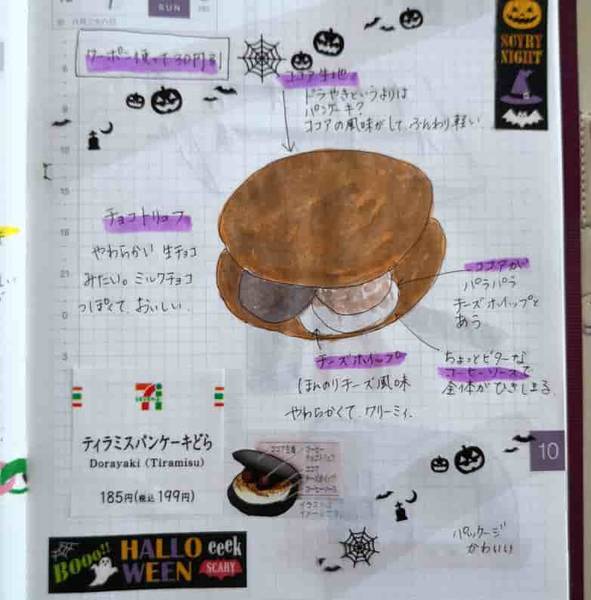 SUN
クーポン使って30円引
SCARY
NIGHT
ココア生地
ドラやきというよりは
パンケーキ?
ココアの風味がして ふんわり軽い
チョコトリュフ
やわらかい 生チョコ
みたい。ミルクチョコ
っぽくて、おいしい。
ココアがい
パラパラ
チーズホイップと
あう
チーズホイップ
ほんのりチーズ風味
やわらかくて、クリーミィ。
ちょっとビターな
コーヒーソースで
全体がひきしまる
ティラミスパンケーキどら
Dorayaki (Tiramisu)
185円(税込 199円)
ココア生地
コーヒー
ココア
チーズホイップ
コーヒーソース
イラストは
イメージです。
10
パッケージ
かわいい
Booo!!
HALLO
WEEN
eeek
SCARY
3
6
9
12
15
18
21
0
3